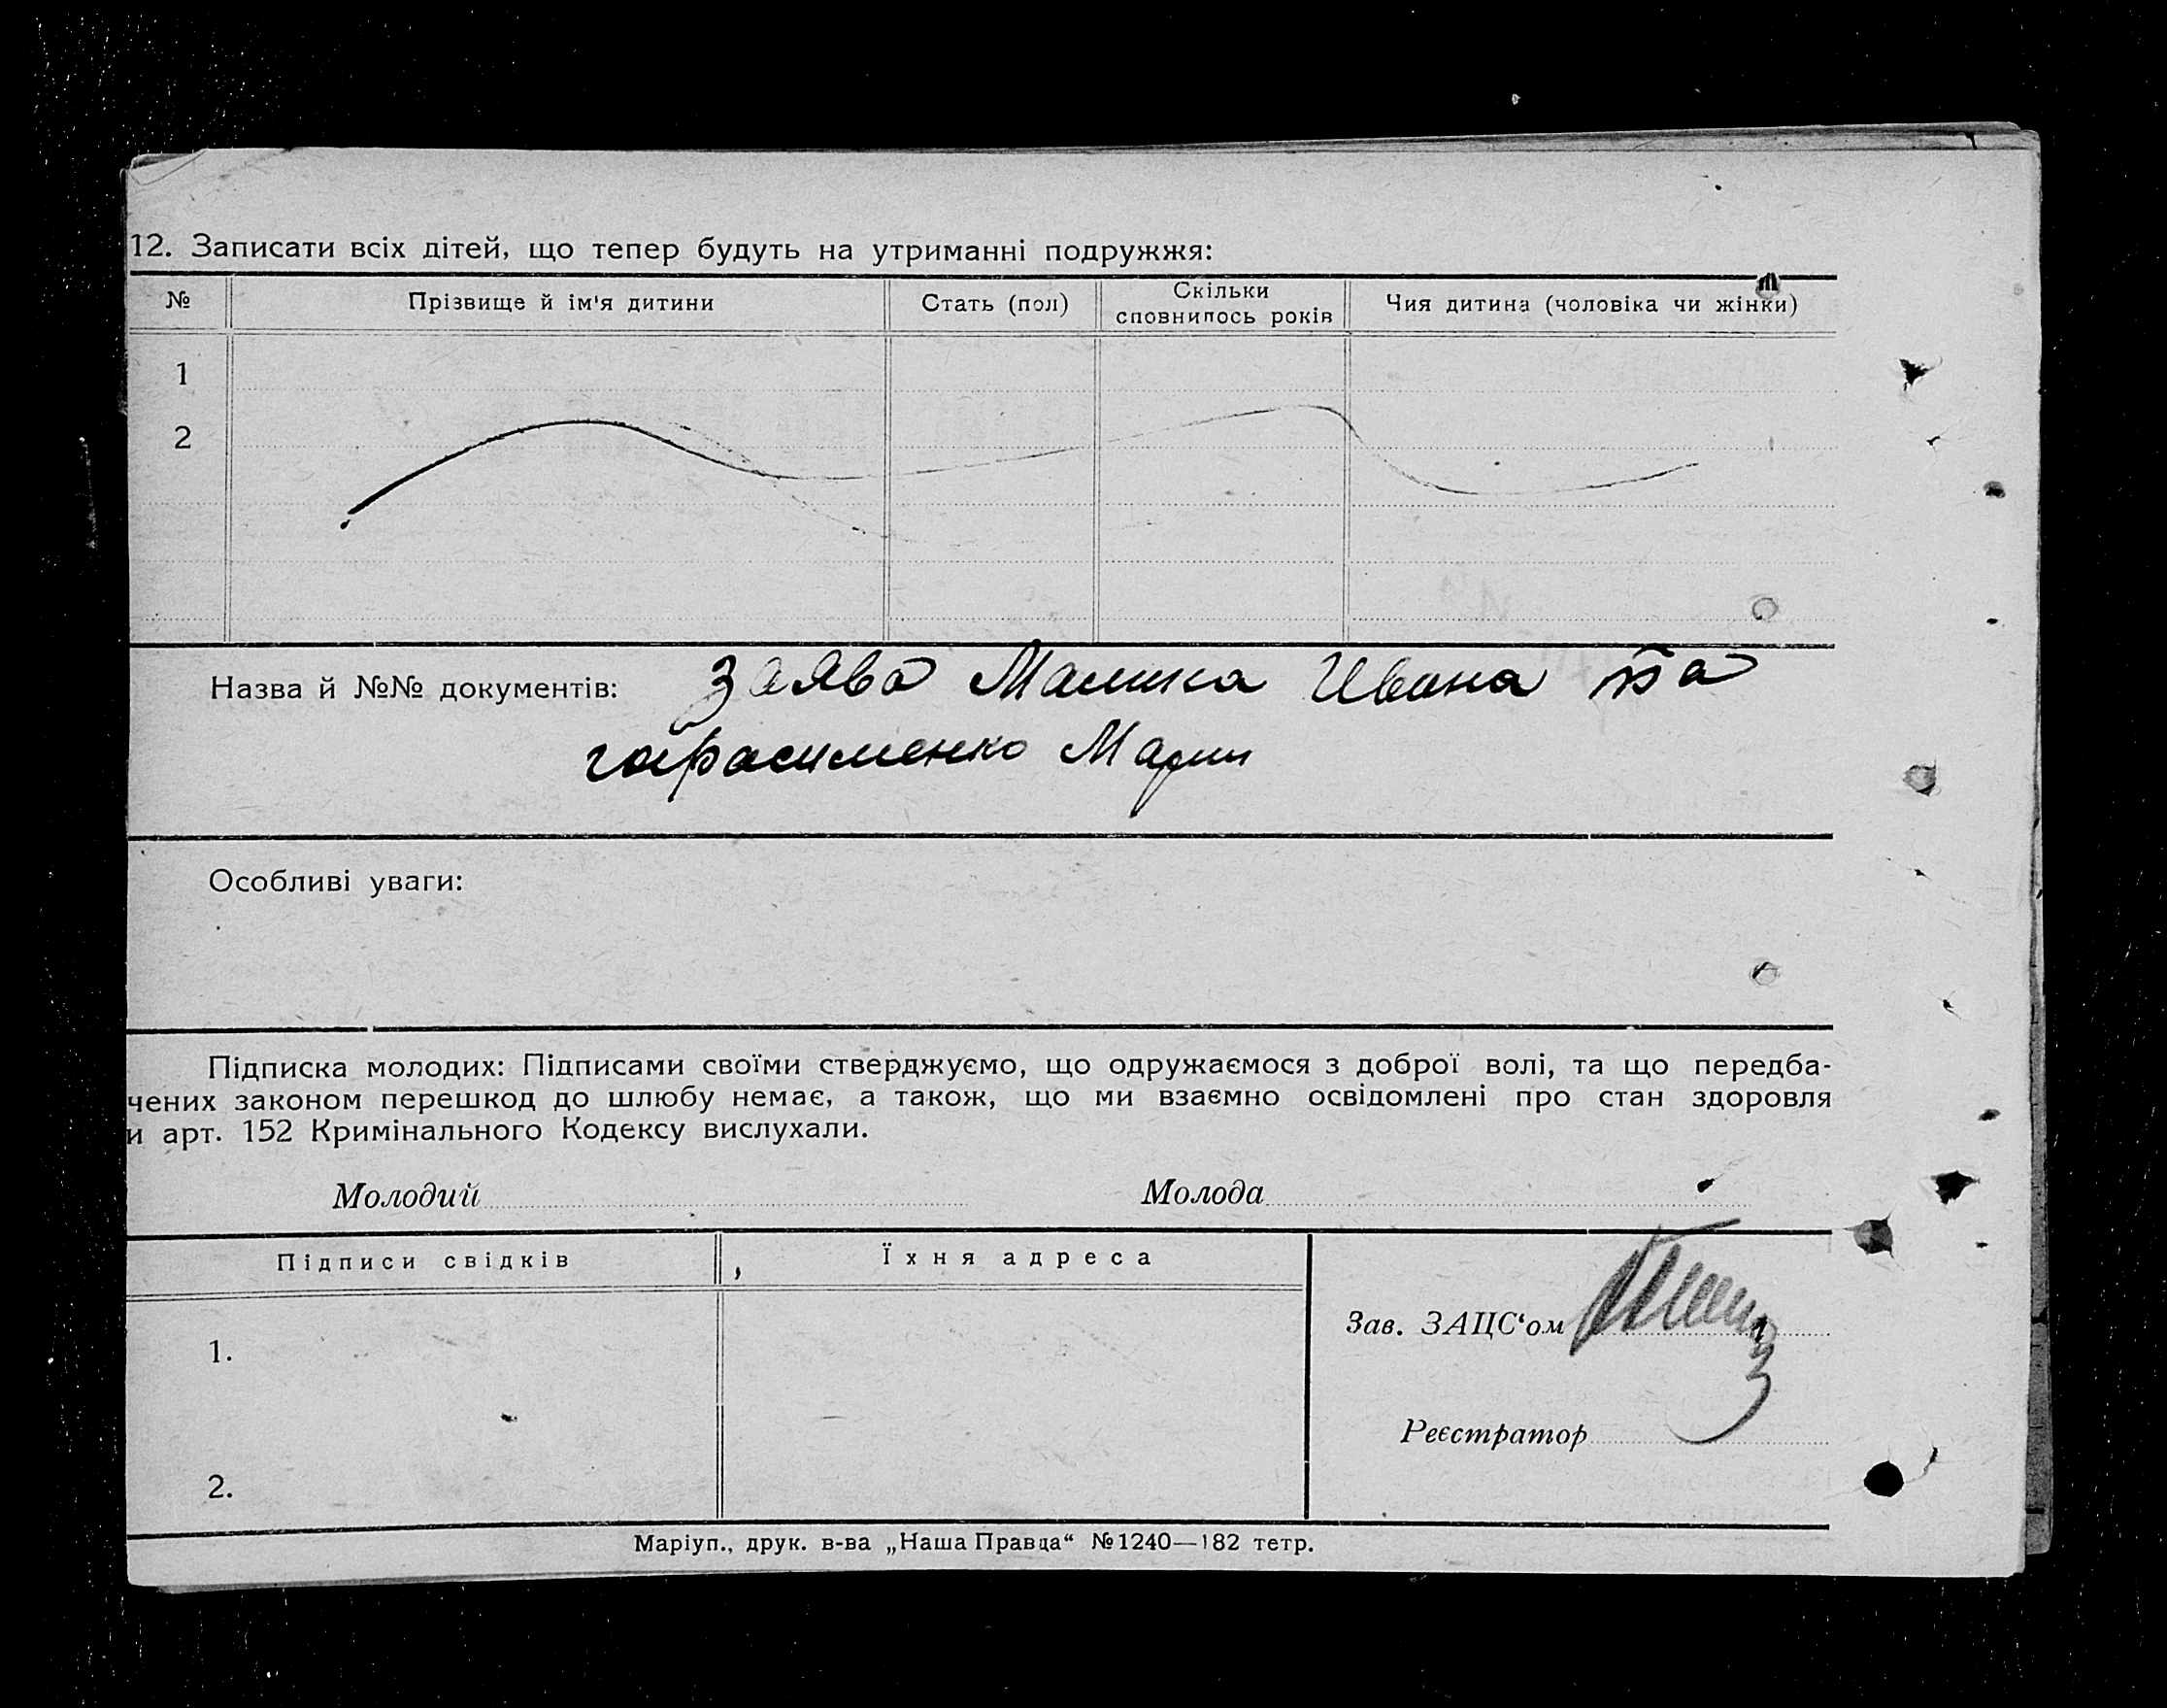 12. Записати всіх дітей, що тепер будуть на утриманні подружжя:
№ Прізвище й ім'я дитини Стать (пол) Скільки сповнилось років Чия дитина (чоловіка чи жінки)
1
2
Назва й №№ документів: Заява Малика Ивана та
гарасименко Марии
Особливі уваги:
Підписка молодих: Підписами своїми стверджуємо, що одружаємося з доброї волі, та що передба-
чених законом перешкод до шлюбу немає, а також, що ми взаємно освідомлені про стан здоровля
и арт. 152 Кримінального Кодексу вислухали.
Молодий Молода
Підписи свідків Їхня адреса
Зав. ЗАЦС‘ом
1.
Реєстратор
2.
Маріуп., друк. в-ва „Наша Правда“ №1240—182 тетр.